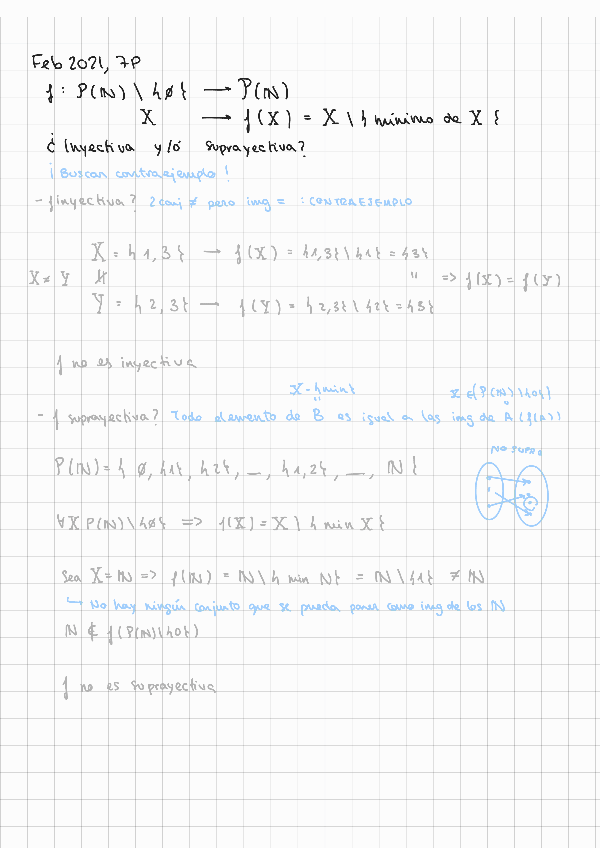 Feb 2021, 7P
f : P(ℕ) \ {∅} → P(ℕ)
X → f(X) = X \ { mínimo de X }
¿ Inyectiva y/ó suprayectiva?
¡ Buscar contraejemplo !
- f inyectiva? 2 conj ≠ pero img = : CONTRAEJEMPLO
X = {1,3} → f(X) = {1,3} \ {1} = {3}
X ≠ Y ∦ " => f(X) = f(Y)
Y = {2,3} → f(Y) = {2,3} \ {2} = {3}
f no es inyectiva
X - {min}
X ∈ (P(ℕ) \ {0})
- f suprayectiva? Todo elemento de B es igual a las img de A (f(A))
NO SUPRA
P(ℕ) = { ∅, {1}, {2}, —, {1,2}, —, ℕ }
∀X P(ℕ) \ {∅} => f(X) = X \ { min X }
Sea X = ℕ => f(ℕ) = ℕ \ { min ℕ} = ℕ \ {1} ≠ ℕ
↳ No hay ningún conjunto que se pueda poner como img de los ℕ
ℕ ∉ f(P(ℕ) \ {0})
f no es suprayectiva